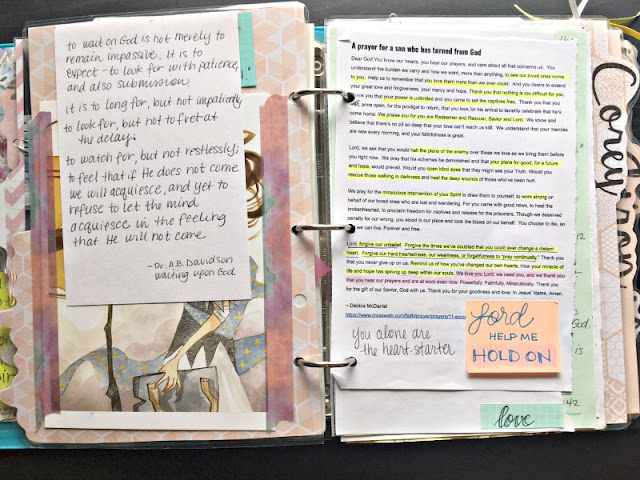 to wait on God is not merely to
remain impassive. it is to
expect - to look for with patience,
and also submission
it is to long for, but not impatiently
to look for, but not to fret at
the delay.
to watch for, but not restlessly;
to feel that if He does not come
we will acquiesce, and yet to
refuse to let the mind
acquiesce in the feeling
that He will not come
- Dr. A.B. Davidson
waiting upon God
A prayer for a son who has turned from God
Dear God: You know our hearts, you hear our prayers, and care about all that concerns us. You
understand the burden we carry and how we want, more than anything, to see our loved ones come
to you. Help us to remember that you love them more than we ever could. And you desire to extend
your great love and forgiveness, your mercy and hope. Thank you that nothing is too difficult for you,
thank you that your power is unlimited and you came to set the captives free. Thank you that you
wait, arms open, for the prodigal to return, that you long for his arrival to lavishly celebrate that he's
come home. We praise you for you are Redeemer and Rescuer, Savior and Lord. We know and
believe that there's no pit so deep that your love can't reach us still. We understand that your mercies
are new every morning, and your faithfulness is great.
Lord, we ask that you would halt the plans of the enemy over these we love as we bring them before
you right now. We pray that his schemes be demolished and that your plans for good, for a future
and hope, would prevail. Would you open blind eyes that they might see your Truth. Would you
rescue those walking in darkness and heal the deep wounds of those who've been hurt.
We pray for the miraculous intervention of your Spirit to draw them to yourself, to work strong on
behalf of our loved ones who are lost and wandering. For you came with good news, to heal the
brokenhearted, to proclaim freedom for captives and release for the prisoners. Though we deserved
penalty for our wrong, you stood in our place and took the blows on our behalf. You choose to die, so
we can live. Forever and free.
Lord, forgive our unbelief. Forgive the times we've doubted that you could ever change a distant
heart. Forgive our hard-heartedness, our weariness, or forgetfulness to "pray continually." Thank you
that you never give up on us. Remind us of how you've changed our own hearts. How your miracle of
life and hope has sprung up deep within our souls. We love you Lord, we need you, and we thank you
that you hear our prayers and are at work even now. Powerfully. Faithfully. Miraculously. Thank you
for the gift of our Savior, God with us. Thank you for your goodness and love. In Jesus' Name, Amen.
~ Debbie McDaniel
https://www.crosswalk.com/faith/prayer/prayers/11
you alone are
the heart-starter
Lord
HELP ME
HOLD ON
love